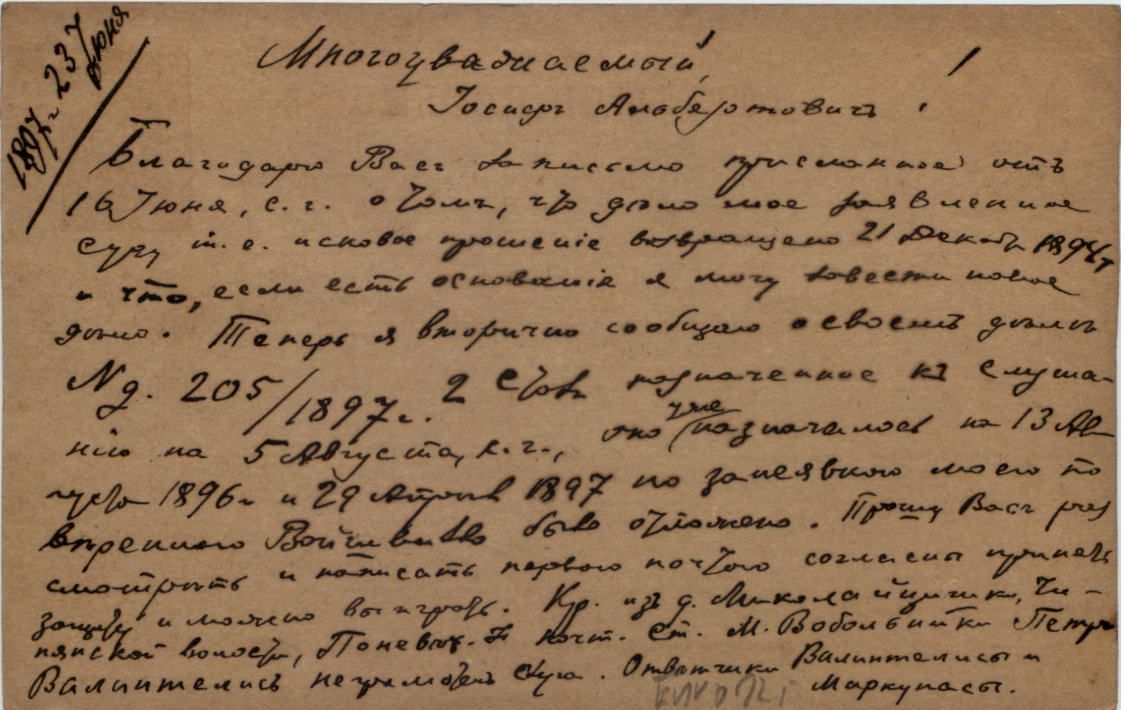 1897 г. 23 Июня
Многоуважаемый,
Iосифъ Альбертовичъ!
Благодарю Васъ за письмо присланное отъ
16 Июня, с. г. о томъ, что дѣло мое заявленное
суду т. е. исковое прошенiе возвращено 21 Декаб.
и что, если есть основанiя я могу завести новое
дѣло. Теперь я вторично сообщаю о своемъ дѣлѣ
N д. 205/1897 г. 2 назначенное къ слуша-
нiю на 5 Августа, к. г., оно уже назначалось на 13 Ав-
густа 1896 г и 29 Апрѣля 1897 но моего по
вѣреннаго было отложено. Прошу Васъ раз
смотрѣть и написать первою почтою согласны принять
защиту и можно выиграть. Кр. изъ д. Миколайцишки,
волости, Понев. почт. ст. М. Вобольники Петръ
Валинтелисъ неграмотенъ. Отвѣтчики Валинтелисы и
Маркупасы.